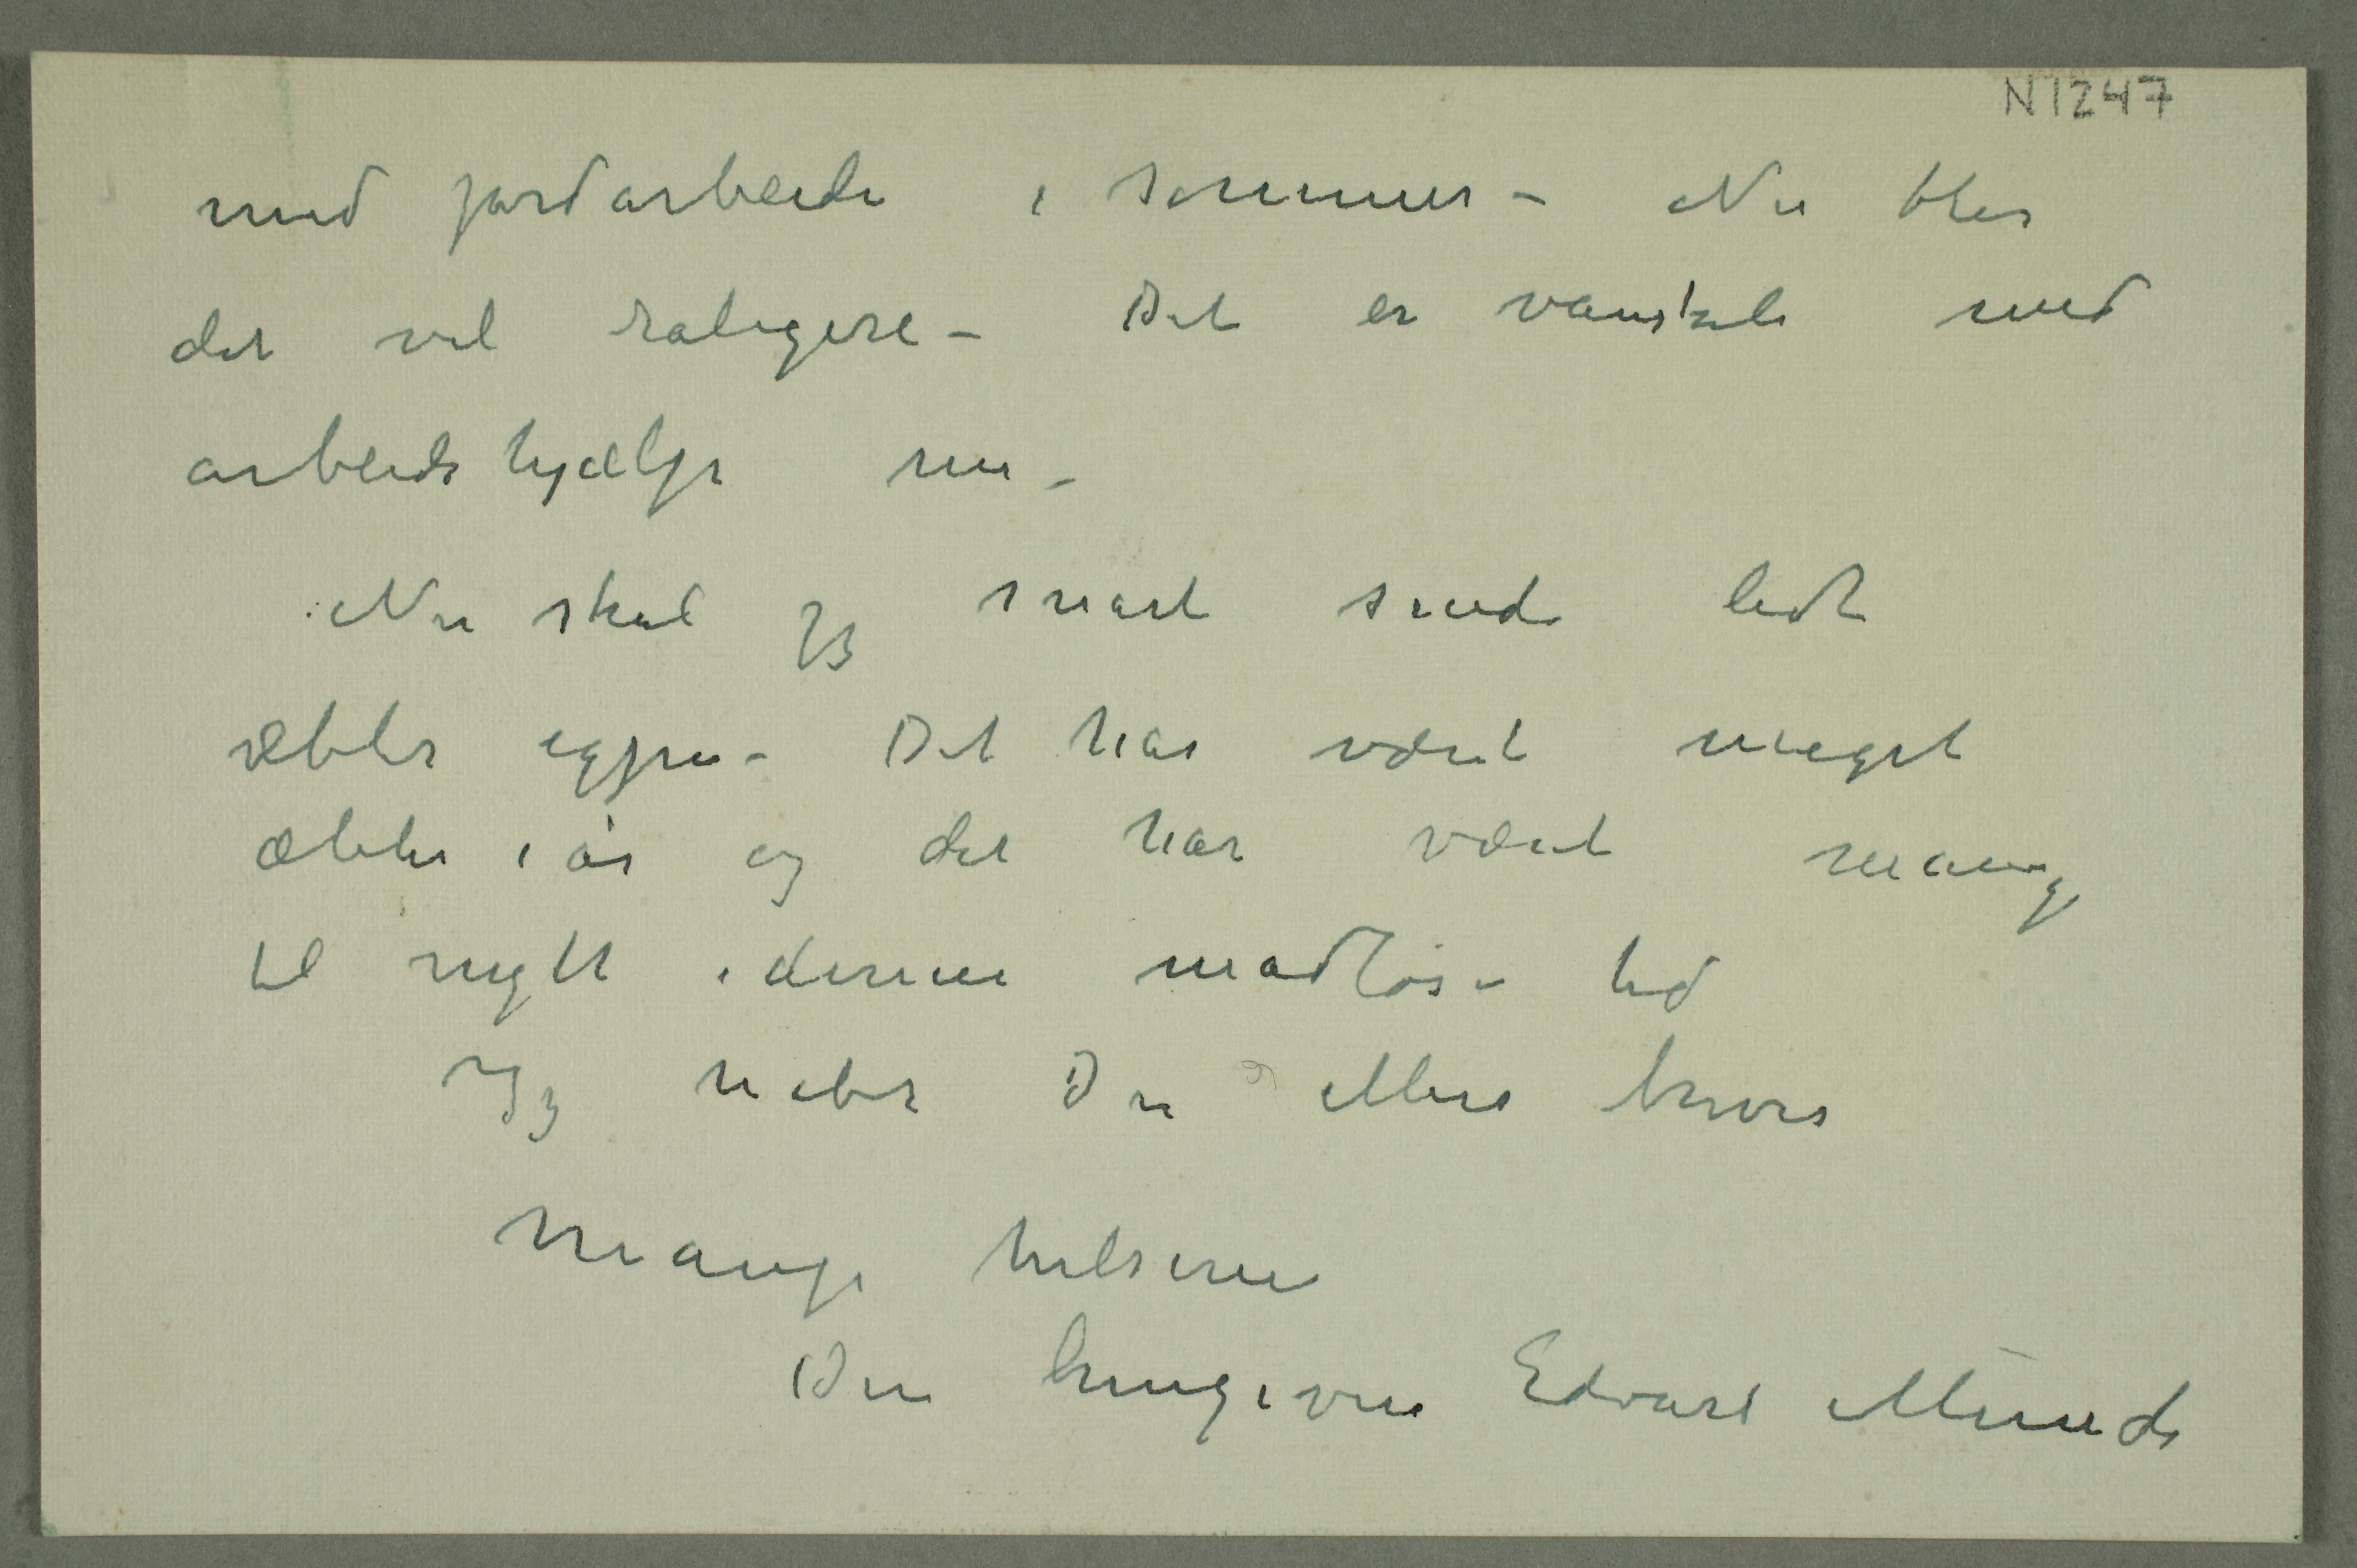 N 1247
med jordarbeide i sommer – Nu blir
det vel roligere – Det er vanskeli med
arbeidshjælp nu –
Nu skal jeg snart sende lidt
æbler igjen – Det har været meget
æbler i år og det har været mange
til nytte i denne madløse tid
Jeg håber Du og Mus
Mange hilsener
Din hengivne Edvard Munch